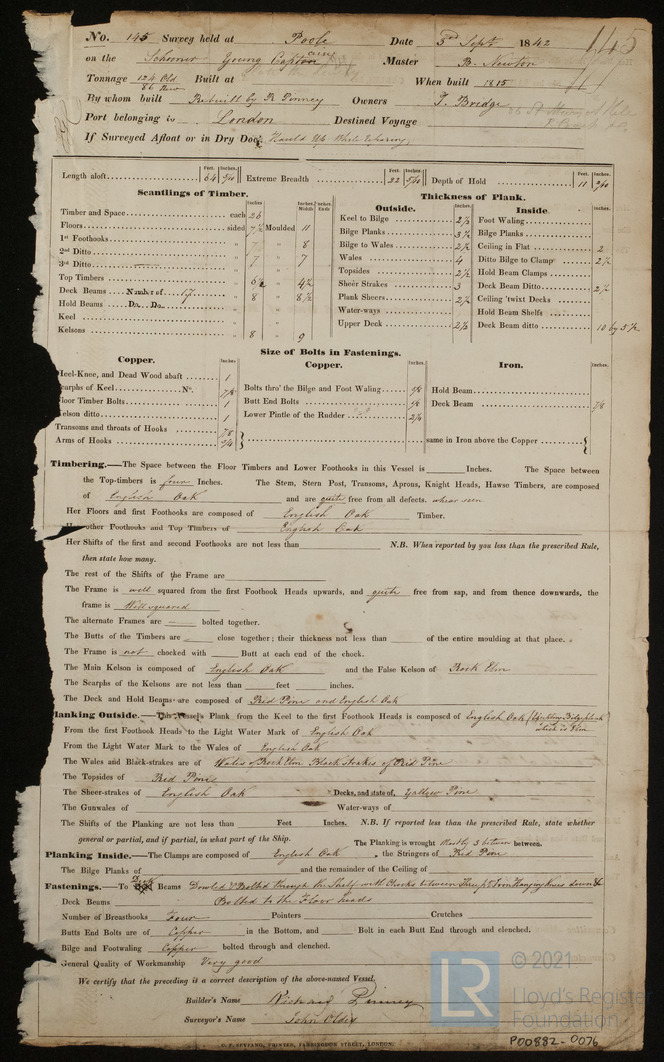 No. 145 Survey held at Poole Date 3d Sept 1842 145
on the Schooner Young Master B. Newton
Tonnage 124 Old 86 New Built at When built 1815
By whom built Rebuilt by R Pinney Owners T. Bridge
Port belonging to London Destined Voyage
If Surveyed Afloat or in Dry Dock
Length aloft 64 Feet. Inches. Extreme Breadth 22 5/10 Feet. Inches. Depth of Hold 11 Feet. Inches.
Scantlings of Timber.
Inches Inches Middle Inches Ends
Timber and Space each 26
Floors sided 7 1/2 Moulded 11
1st Foothooks " " 8
2nd Ditto " 7 " 7
3rd Ditto " "
Top Timbers " 6 1/2 " 4 1/2
Deck Beams Number of 17 " 8 " 8 1/2
Hold Beams Do. Do. " "
Keel " "
Kelsons " 8 " 9
Thickness of Plank.
Outside. Inches.
Keel to Bilge 2 1/2
Bilge Planks 3 1/2
Bilge to Wales 2 1/2
Wales 4
Topsides 2 1/2
Sheer Strakes 3
Plank Sheers 2 1/2
Water-ways
Upper Deck 2 1/2
Inside. Inches.
Foot Waling
Bilge Planks
Ceiling in Flat 2
Ditto Bilge to Clamp 2 1/2
Hold Beam Clamps
Deck Beam Ditto 2 1/2
Ceiling 'twixt Decks
Hold Beam Shelfs
Deck Beam ditto 10 by 5 1/2
Size of Bolts in Fastenings.
Copper. Inches
Heel-Knee, and Dead Wood abaft 1
Scarphs of Keel No. 7/8
Floor Timber Bolts 1
Kelson ditto 1
Transoms and throats of Hooks 7/8
Arms of Hooks 3/4
Copper. Inches.
Bolts thro' the Bilge and Foot Waling
Butt End Bolts
Lower Pintle of the Rudder 2 1/4
Iron. Inches.
Hold Beam
Deck Beam 7/8
same in Iron above the Copper
Timbering.—The Space between the Floor Timbers and Lower Foothooks in this Vessel is Inches. The Space between
the Top-timbers is four Inches. The Stem, Stern Post, Transoms, Aprons, Knight Heads, Hawse Timbers, are composed
of English Oak and are quite free from all defects. where seen
Her Floors and first Foothooks are composed of English Oak Timber.
other Foothooks and Top Timbers of English Oak
Her Shifts of the first and second Foothooks are not less than N.B. When reported by you less than the prescribed Rule,
then state how many.
The rest of the Shifts of the Frame are
The Frame is well squared from the first Foothook Heads upwards, and quite free from sap, and from thence downwards, the
frame is Well squared
The alternate Frames are — bolted together.
The Butts of the Timbers are — close together; their thickness not less than of the entire moulding at that place.
The Frame is not chocked with Butt at each end of the chock.
The Main Kelson is composed of English Oak and the False Kelson of Rock Elm
The Scarphs of the Kelsons are not less than feet inches.
The Deck and Hold Beams are composed of Red Pine and English Oak
Planking Outside.—This Vessel's Plank from the Keel to the first Foothook Heads is composed of English Oak (Excepting Bilge plank which is Elm
From the first Foothook Heads to the Light Water Mark of English Oak
From the Light Water Mark to the Wales of English Oak
The Wales and Black-strakes are of Wales of Rock Elm Black Strakes of Red Pine
The Topsides of Red Pine
The Sheer-strakes of English Oak Decks, and state of, Yellow Pine
The Gunwales of Water-ways of
The Shifts of the Planking are not less than Feet Inches. N.B. If reported less than the prescribed Rule, state whether
general or partial, and if partial, in what part of the Ship. The Planking is wrought Mostly 3 between between.
Planking Inside.—The Clamps are composed of English Oak , the Stringers of Red Pine
The Bilge Planks of and the remainder of the Ceiling of
Fastenings.—To Deck Beams Doweled & Bolted through the Shelf with Chocks between Iron Hanging knees down &
Deck Beams Bolted to the Floor heads
Number of Breasthooks Four Pointers Crutches
Butts End Bolts are of Copper in the Bottom, and Bolt in each Butt End through and clenched.
Bilge and Footwaling Copper bolted through and clenched.
General Quality of Workmanship Very good
We certify that the preceding is a correct description of the above-named Vessel.
Builder's Name Richard Pinney
Surveyor's Name
SEYFANG, PRINTER, FARRINGDON STREET, LONDON.
LR © 2021
Lloyd's Register
Foundation
P00882-0076